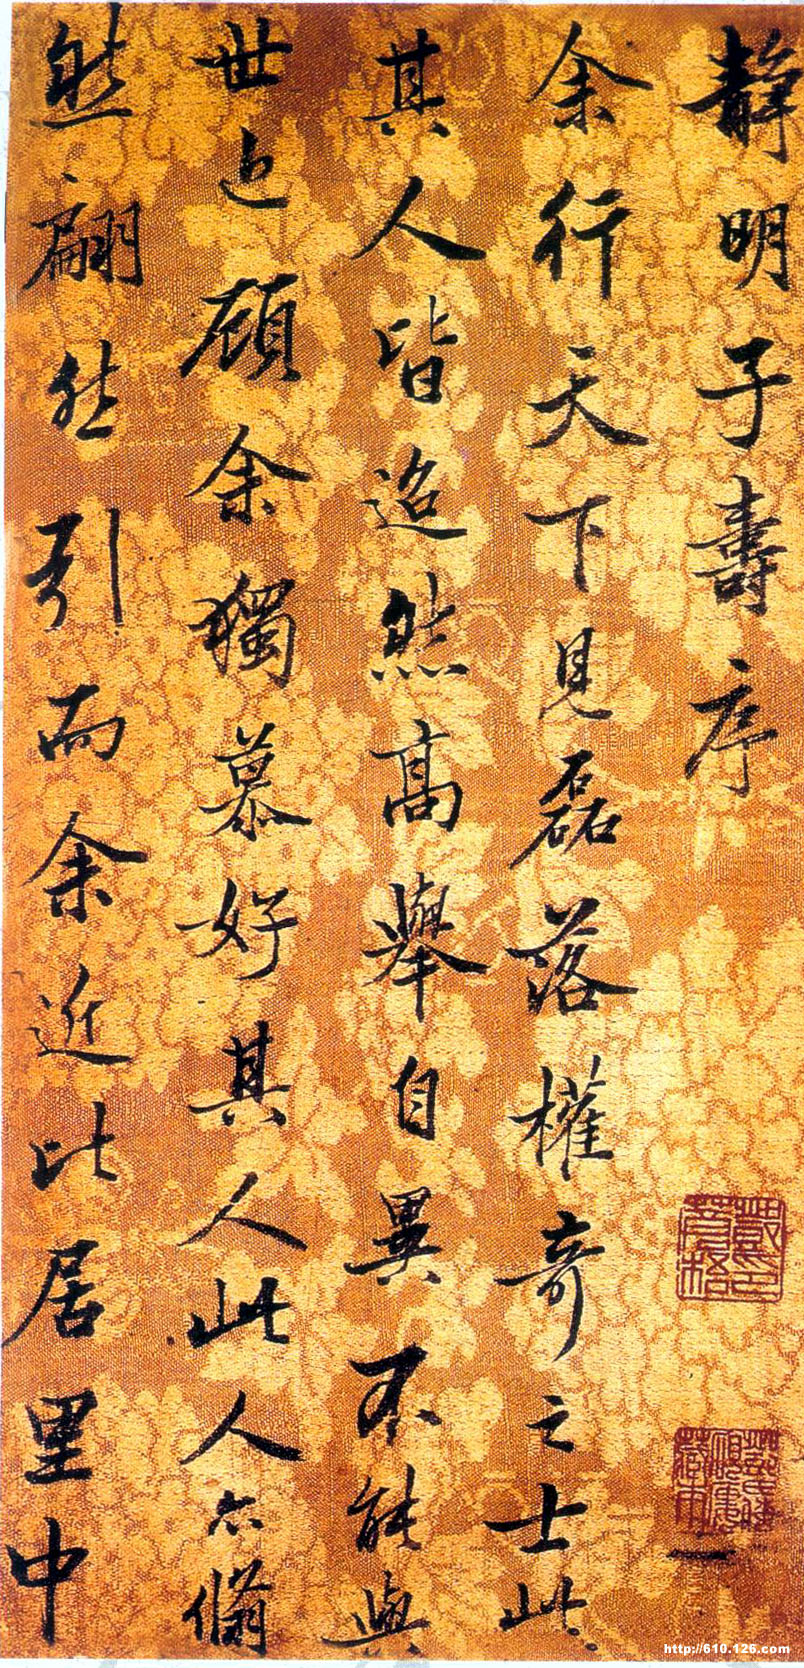 静明子壽序
余行天下見磊落權奇之士此
其人皆迢然高舉自異不能與
世上顧余獨慕好其人此人亦翛
然翩然引而余近比居里中
http://610.126.com